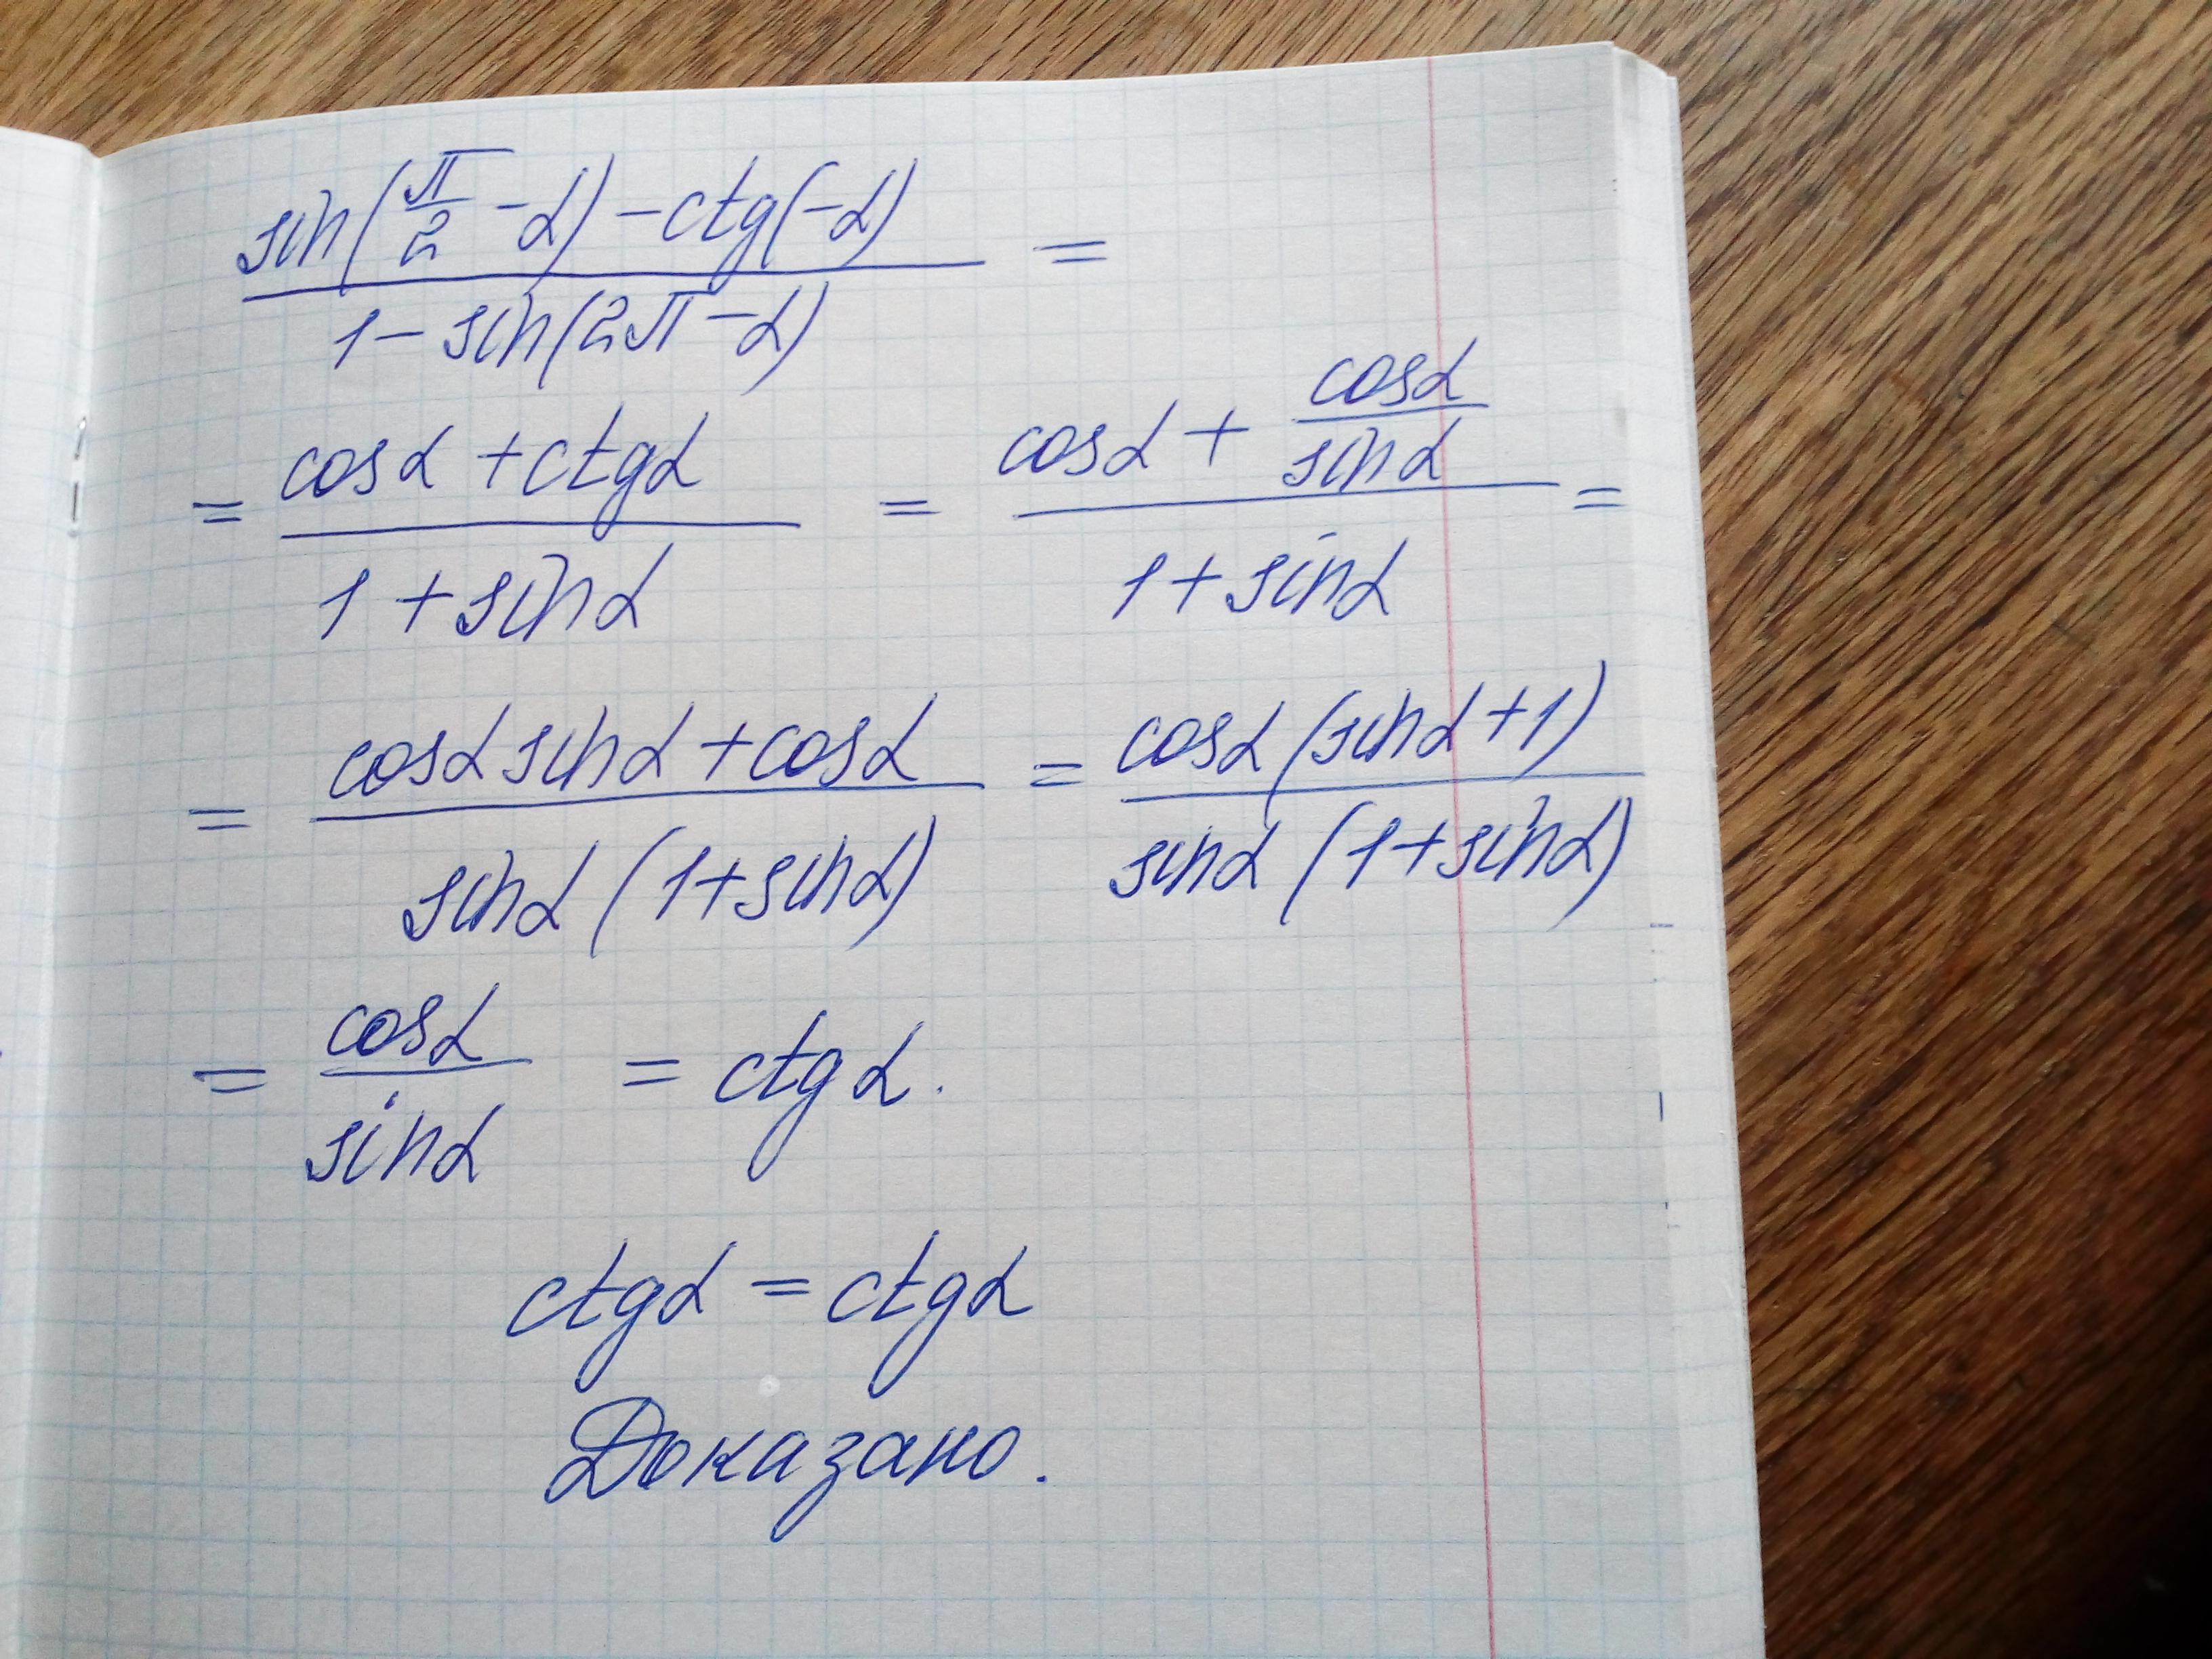 sin(π/2 - α) - ctg(-α) / 1 - sin(2π - α) =
= cosα + ctgα / 1 + sinα = cosα + cosα/sinα / 1 + sinα =
= cosα sinα + cosα / sinα (1 + sinα) = cosα (sinα + 1) / sinα (1 + sinα)
= cosα / sinα = ctg α.
ctgα = ctgα
Доказано.